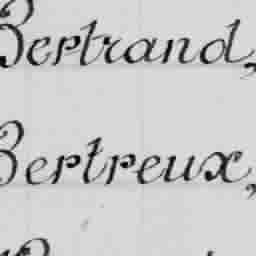 Bertrand,
Bertreux,